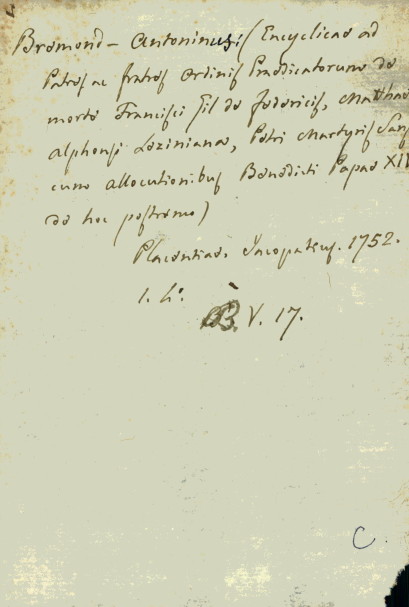 Bremond – Antoninus; (Encyclicae ad
Patres ac fratres ordinis Praedicatorum de
morte Francisci Gil de Federicis, Matthaei
Alphonsi Leziniana, Petri Martyris Sanz
cum allocutionibus Benedicti Papae XIV
de hoc postremo)
Placentiae. 1752.
1. 4°.
B. V. 17.
C.